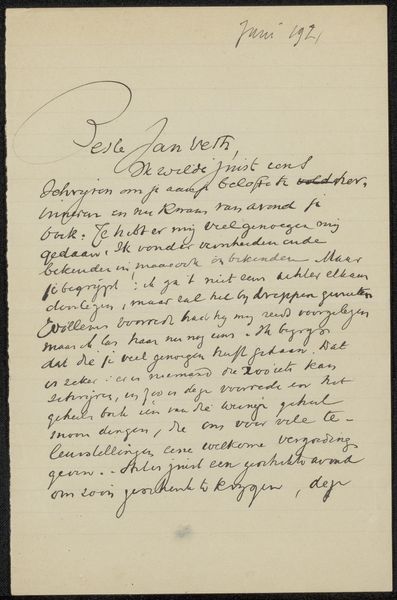 Juni 1921
Beste Jan Veth,
Ik wilde juist eens
schrijven om je aan je belofte te her-
inneren en nu kwam van avond je
boek. Je hebt er mij veel genoegen mij
gedaan. Ik vond er verscheiden oude
bekenden in, maar ook onbekenden. Maar
je begrijpt: ik ga 't niet eens achter elkaar
doorlezen, maar zal het bij droppen genieten
Wolleners voorrede had hij mij reeds voorgelezen
maar ik las haar nu nog eens. Ik begrijp
dat die je veel genoegen heeft gedaan. Dat
is zeker: er is niemand die zooiets kan
schrijven, en zoo is deze voorrede en het
geheele boek een van die weinige geheel
mooie dingen, die ons voor vele te-
leurstellingen eene welkome vergoeding
geven. - Het is juist een geschikte avond
om zoo'n geschenk te krijgen, deze